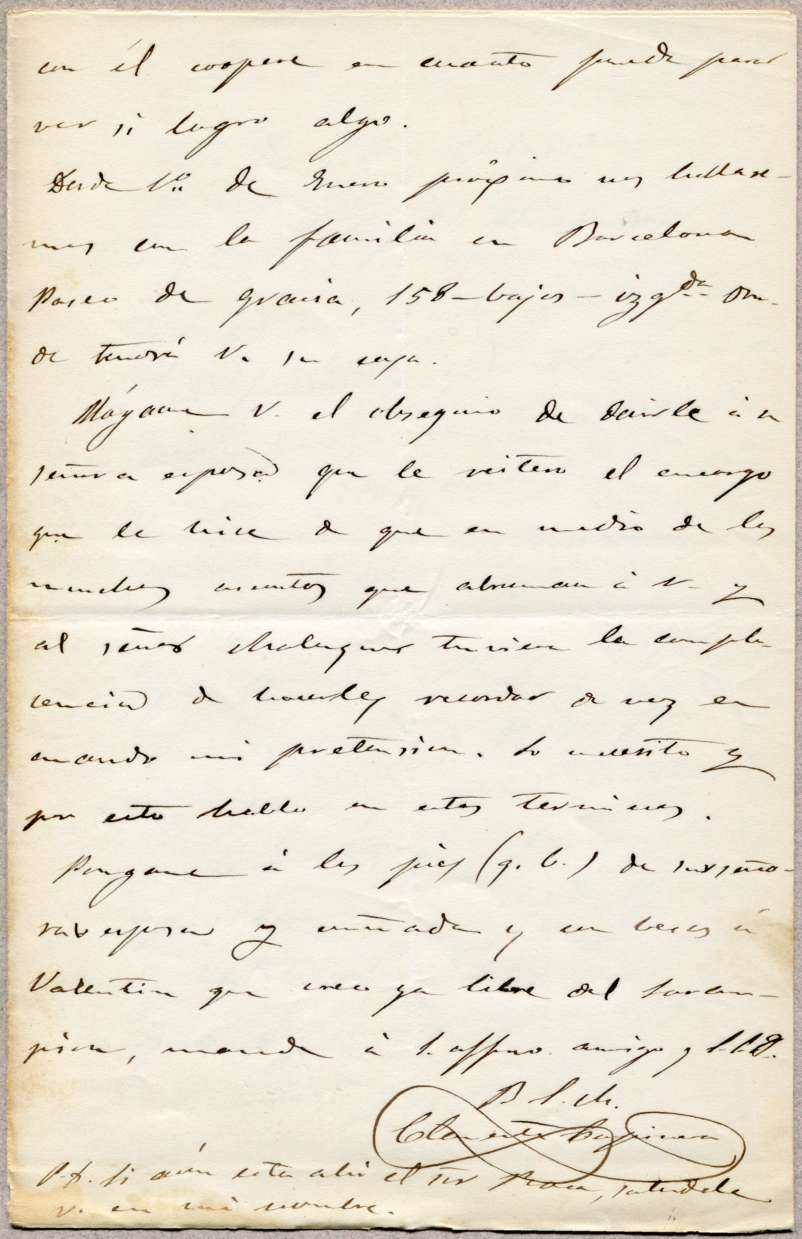 con él coopere en cuanto pueda para
ver si logro algo.
Desde 1º de Enero próximo nos hallare-
mos con la familia en Barcelona
Paseo de Gracia, 158-bajos-izqda don-
de tendrá V. su casa.
Hágame V. el obsequio de decirle á su
señora esposa que le reitero el encargo
que le hice de que en medio de los
muchos asuntos que abruman á V. y
al señor Malaguer tuviera la compla-
cencia de hacerles recordar de vez en
cuando mi pretension. Lo necesito y
por esto hablo en estos terminos.
Pongame á los piés (q. b.) de su seño-
ra esposa y cuñada y con besos á
Valentin que creo ya libre del saram-
pion, mande á s. affmo. amigo y S.S.
B. S. M.
Clemente
P.D. Si aún esta ahi el Sr Roca, saludele
V. en mi nombre.